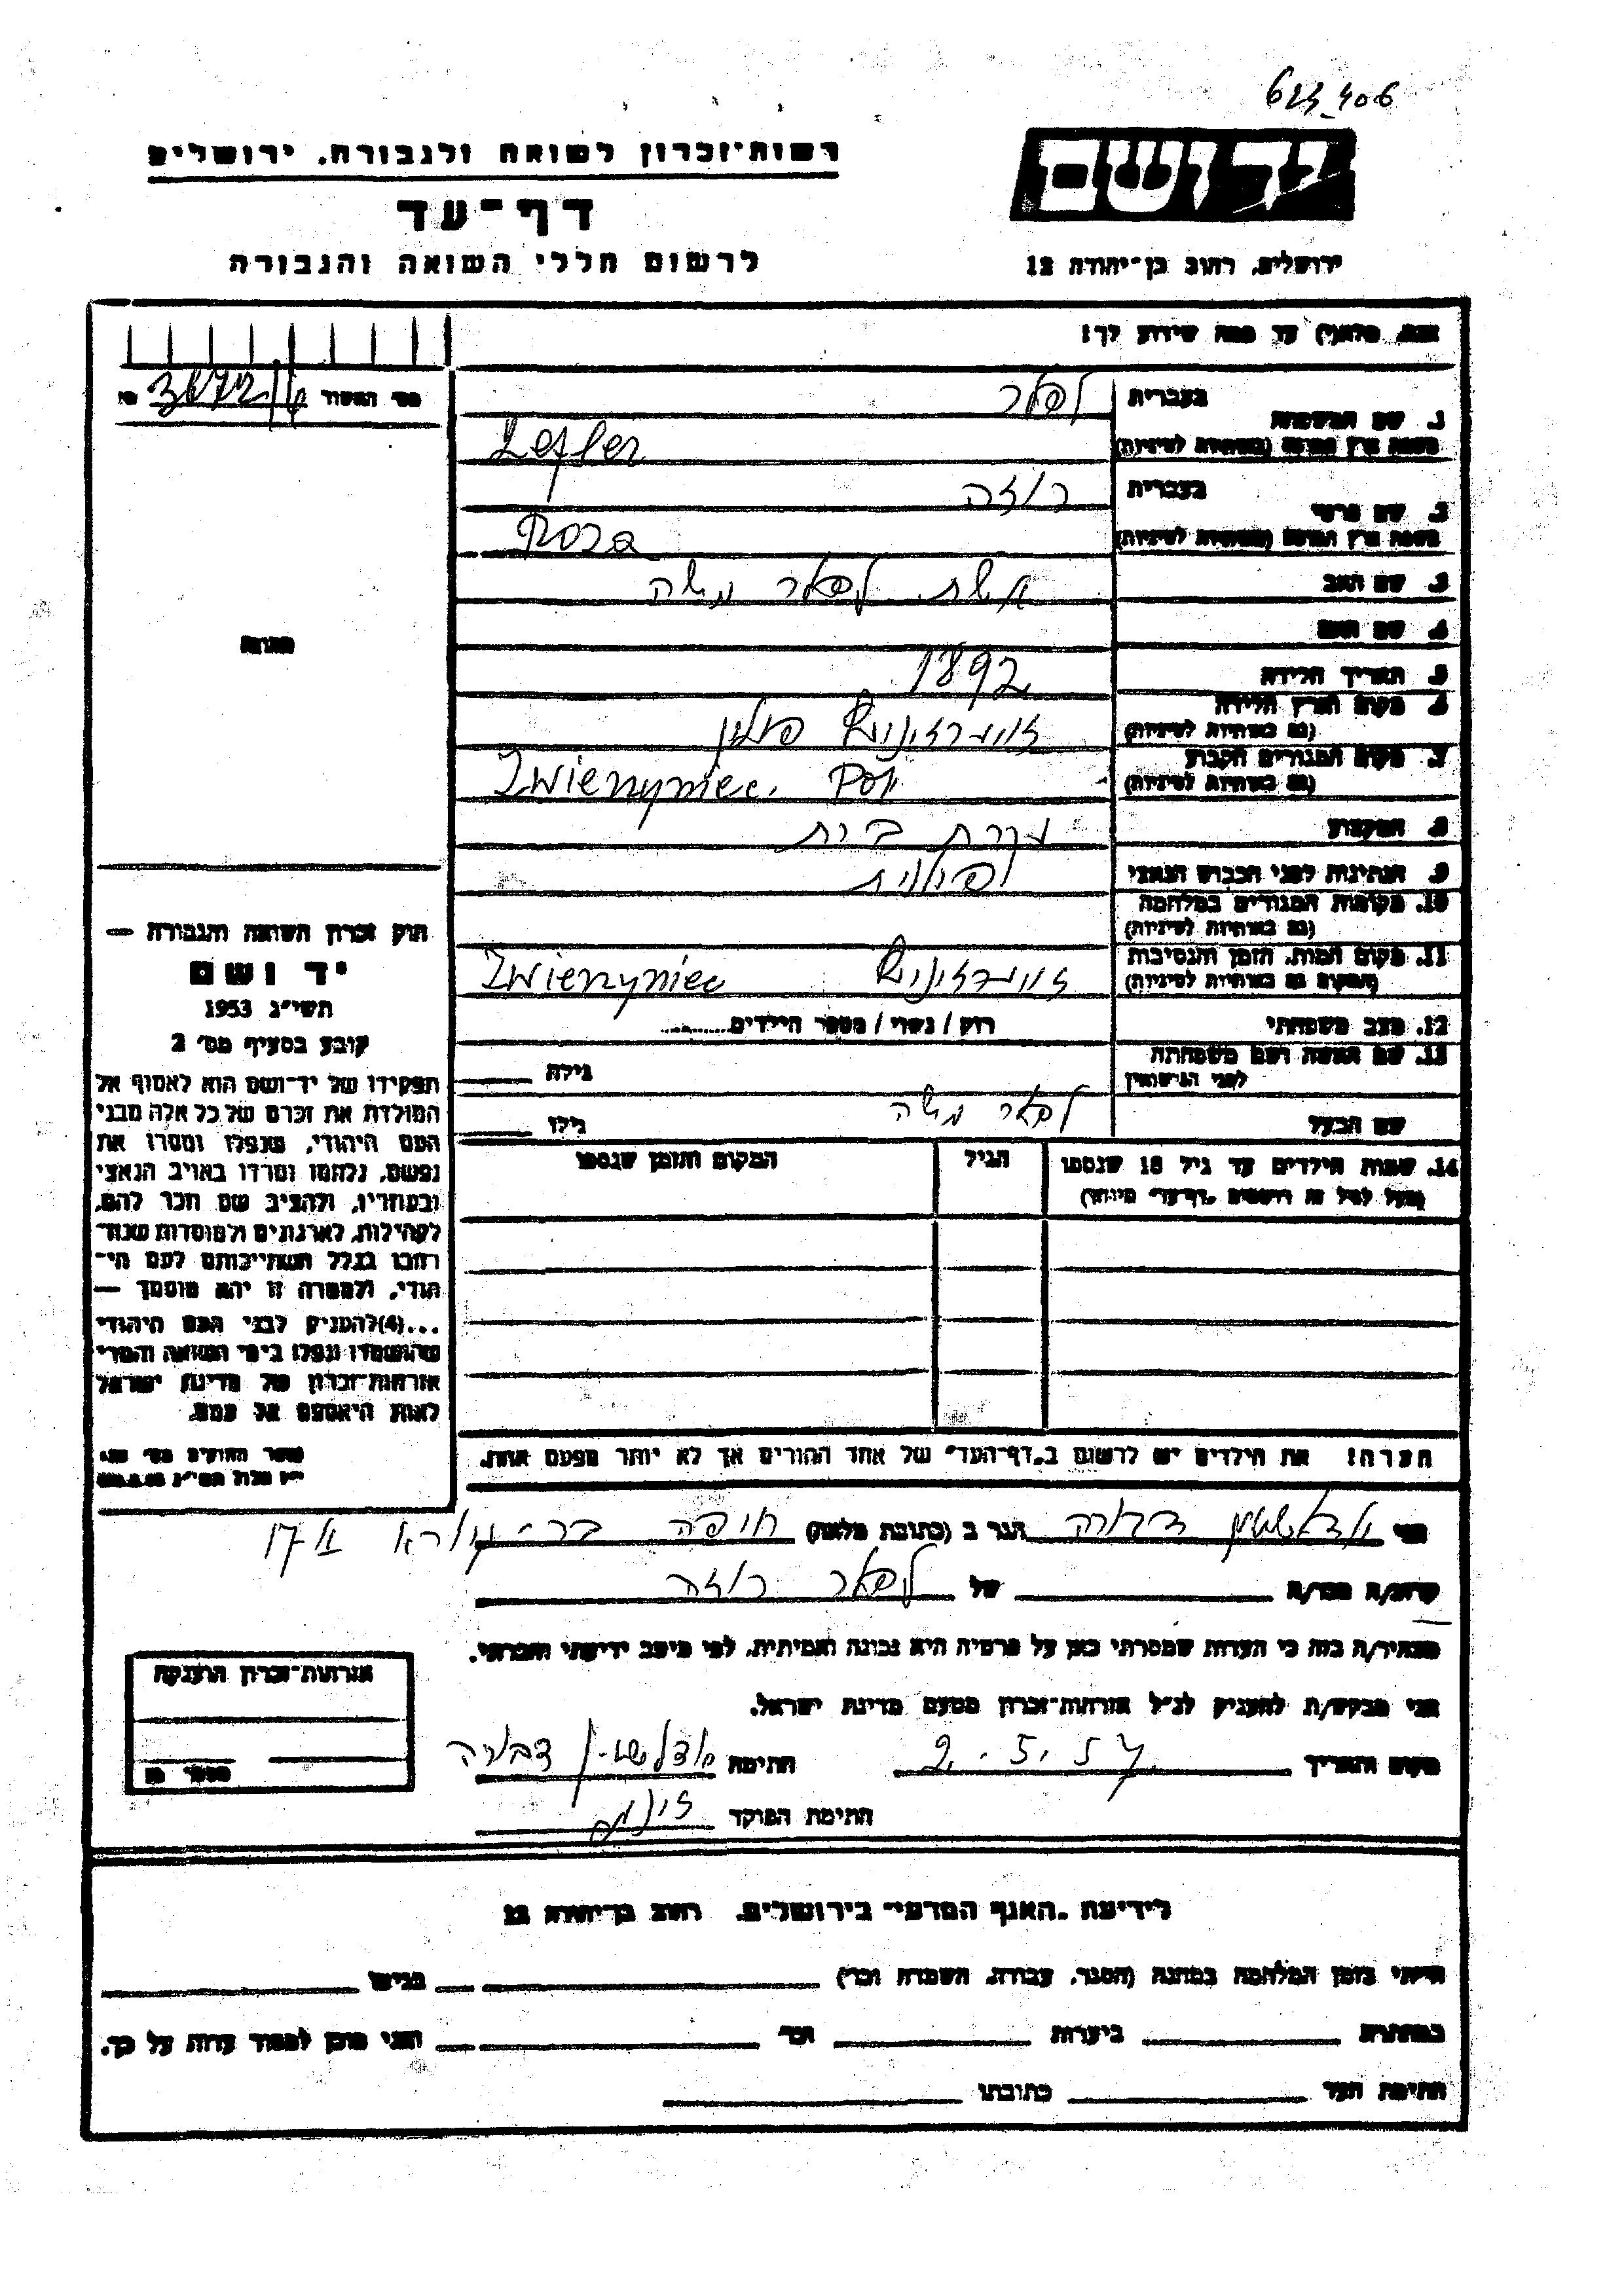 623406
רשות־זכרון לשואה ולגבורה, ירושלים
דף־עד
לרשום חללי השואה והגבורה
יד ושם
ירושלים, רחוב בן־יהודה 12
אנא, מלא(י) עד כמה שידוע לך!
מס׳ המשרד
1. שם המשפחה
בעברית
לפלר
בשפת ארץ המוצא (באותיות לטיניות)
Lefler
2. שם פרטי
בעברית
רוזה
בשפת ארץ המוצא (באותיות לטיניות)
Roza
3. שם האב
אשת לפלר משה
4. שם האם
5. תאריך הלידה
1892
6. מקום וארץ הלידה
(גם באותיות לטיניות)
פולין
7. מקום המגורים הקבוע
(גם באותיות לטיניות)
Zwierzyniec. Pol
8. המקצוע
עקרת בית
9. הנתינות לפני הכבוש הנאצי
פולנית
10. מקומות המגורים במלחמה
(גם באותיות לטיניות)
11. מקום המות, הזמן והנסיבות
(המקום גם באותיות לטיניות)
Zwierzyniec
12. מצב משפחתי
רווק / נשוי / מספר הילדים
13. שם האשה ושם משפחתה
לפני הנישואין
גילה
שם הבעל
לפלר משה
גילו
14. שמות הילדים עד גיל 18 שנספו
(מעל לגיל זה רושמים „דף־עד״ מיוחד)
הגיל
המקום והזמן שנספו
הערה! את הילדים יש לרשום ב„דף־העד״ של אחד ההורים אך לא יותר מפעם אחת.
תמונה
חוק זכרון השואה והגבורה —
יד ושם
תשי״ג 1953
קובע בסעיף מס׳ 2
תפקידו של יד־ושם הוא לאסוף אל
המולדת את זכרם של כל אלה מבני
העם היהודי, שנפלו ומסרו את
נפשם, נלחמו ומרדו באויב הנאצי
ובעוזריו, ולהציב שם וזכר להם,
לקהילות, לארגונים ולמוסדות שנח־
רבו בגלל השתייכותם לעם הי־
הודי, ולמטרה זו יהא מוסמך —
...(4) להעניק לבני העם היהודי
שהושמדו ונפלו בימי השואה והמרי
אזרחות־זכרון של מדינת ישראל
לאות היאספם אל עמם.
ספר החוקים מס׳ 132
אני דבורה הגר ב (כתובת מלאה) חיפה
קרוב/ה מכר/ה של לפלר רוזה
מצהיר/ה בזה כי העדות שמסרתי כאן על פרטיה היא נכונה ואמיתית, לפי מיטב ידיעתי והכרתי.
אני מבקש/ת להעניק לנ״ל אזרחות־זכרון מטעם מדינת ישראל.
מקום ותאריך 2.5.57 חתימה דבורה
חתימת הפוקד
אזרחות־זכרון הוענקה
לידיעת „האגף המדעי״ בירושלים, רחוב בן־יהודה 12
הייתי בזמן המלחמה במחנה (הסגר, עבודה, השמדה וכו׳) בגיטו
במחתרת ביערות וכו׳ הנני מוכן למסור עדות על כך.
חתימת העד כתובתו